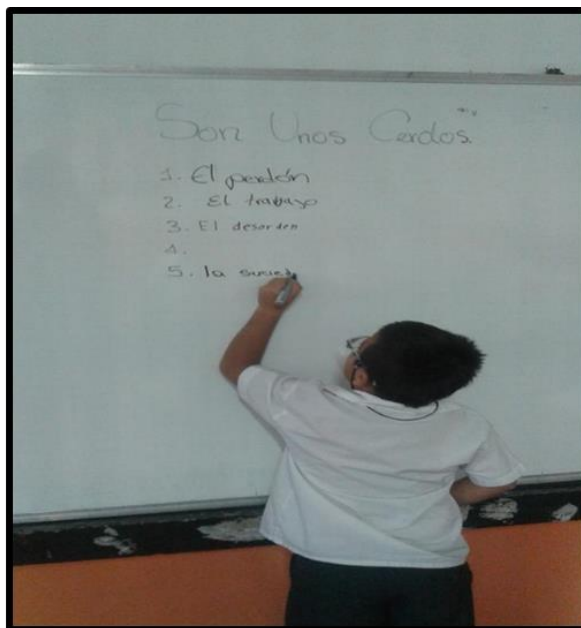 Son Unos Cerdos.
1. El perdón
2. El trabajo
3. El desorden
4.
5. la